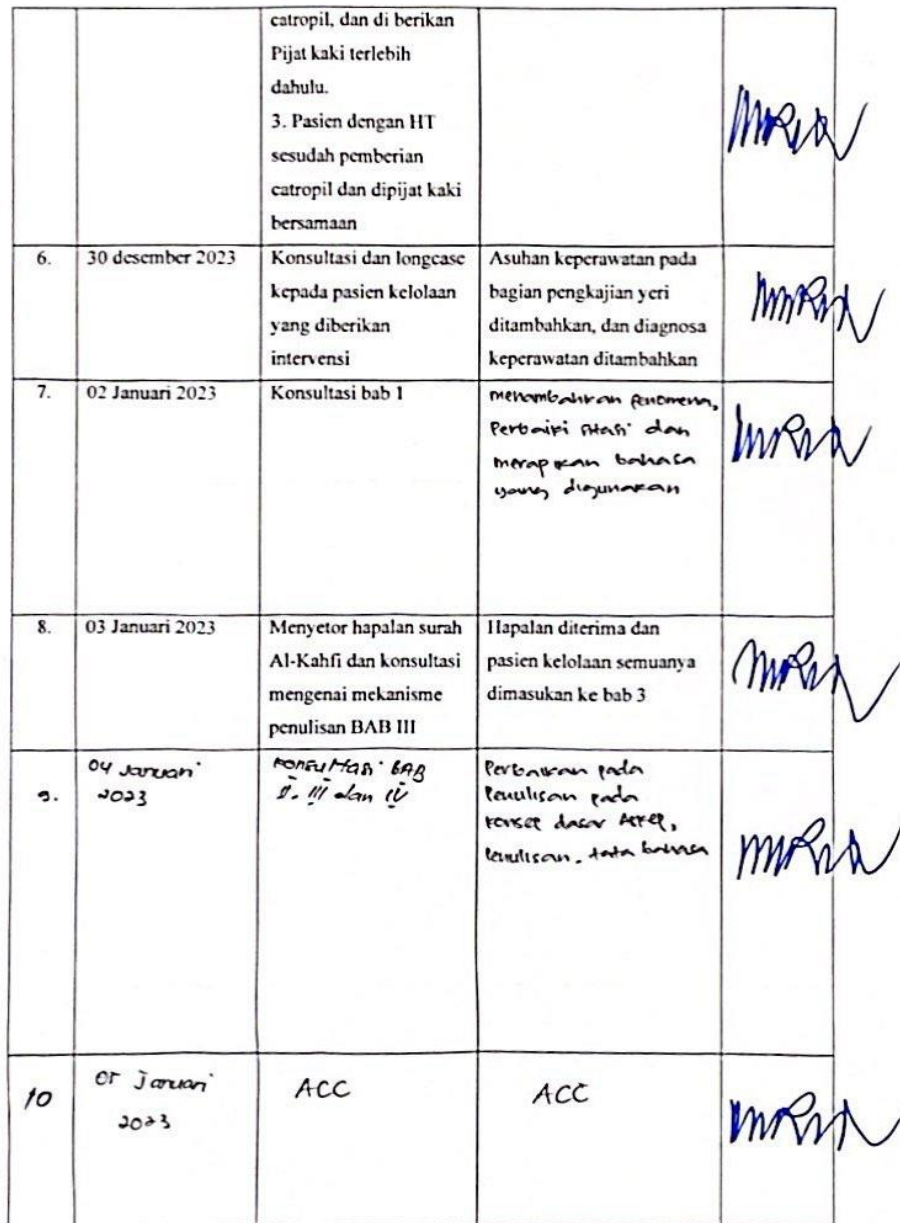 catropil, dan di berikan
Pijat kaki terlebih
dahulu.
3. Pasien dengan HT
sesudah pemberian
catropil dan dipijat kaki
bersamaan
6.
30 desember 2023
Konsultasi dan longcase
kepada pasien kelolaan
yang diberikan
intervensi
Asuhan keperawatan pada
bagian pengkajian yeri
ditambahkan, dan diagnosa
keperawatan ditambahkan
7.
02 Januari 2023
Konsultasi bab 1
menambahkan fenomena,
Perbaiki sitasi dan
merapikan bahasa
yang digunakan
8.
03 Januari 2023
Menyetor hapalan surah
Al-Kahfi dan konsultasi
mengenai mekanisme
penulisan BAB III
Hapalan diterima dan
pasien kelolaan semuanya
dimasukan ke bab 3
9.
04 Januari
2023
Konsultasi BAB
II. III dan IV
Perbaikan pada
Penulisan pada
konsep dasar Askep,
penulisan. tata bahasa
10
05 Januari
2023
ACC
ACC